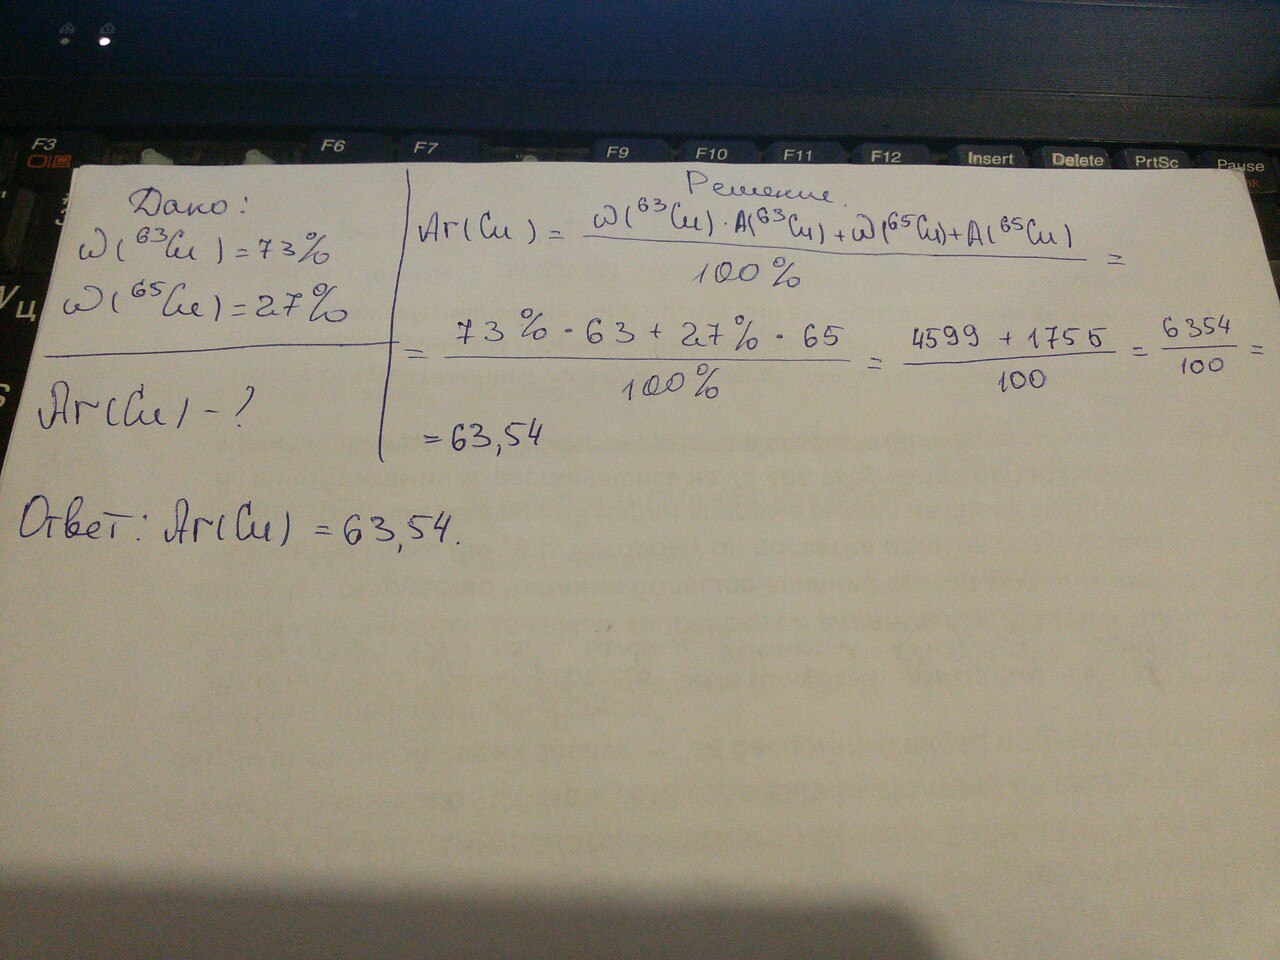 F3 F6 F7 F9 F10 F11 F12 Insert Delete PrtSc Pause
Дано:
ω(⁶³Cu) = 73%
ω(⁶⁵Cu) = 27%
Ar(Cu) - ?
Решение.
Ar(Cu) = (ω(⁶³Cu) · A(⁶³Cu) + ω(⁶⁵Cu) + A(⁶⁵Cu)) / 100% =
= (73% · 63 + 27% · 65) / 100% = (4599 + 1755) / 100 = 6354 / 100 =
= 63,54
Ответ: Ar(Cu) = 63,54.